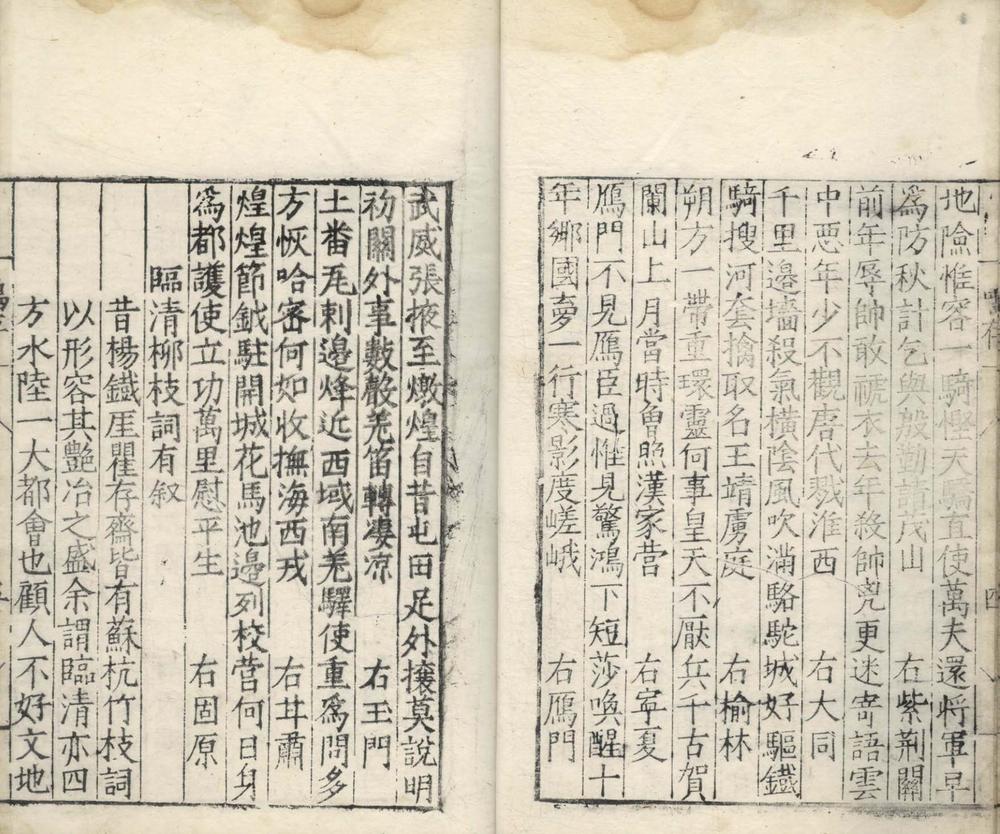 地險惟容一騎慳天驕直使萬夫還將軍早
爲防秋計乞與殷勤護茂山　　右紫荆關
前年辱帥敢褫衣去年殺帥兇更迷寄語雲
中惡年少不觀唐代戮淮西　　右大同
千里邊墻殺氣橫陰風吹滿駱駝城好驅鐵
騎搜河套擒取名王靖虜庭　　右榆林
朔方一帶重環靈何事皇天不厭兵千古賀
闌山上月當時曾照漢家营　　右寧夏
鴈門不見鴈臣過惟見驚鴻下短莎喚醒十
年鄉國夢一行寒影度嵯峨　　右鴈門
武威張掖至燉煌自昔屯田足外攘莫說明
初關外事數聲羌笛轉凄凉　　右玉門
土番瓦剌邊烽近西域南羌驛使重爲問多
方恢哈密何如收撫海西戎　　右甘肅
煌煌節鉞駐開城花馬池邊列校营何日身
爲都護使立功萬里慰平生　　右固原
臨清柳枝詞有叙
昔楊鐵厓瞿存齋皆有蘇杭竹枝詞
以形容其艷冶之盛余謂臨清亦四
方水陸一大都會也顧人不好文地